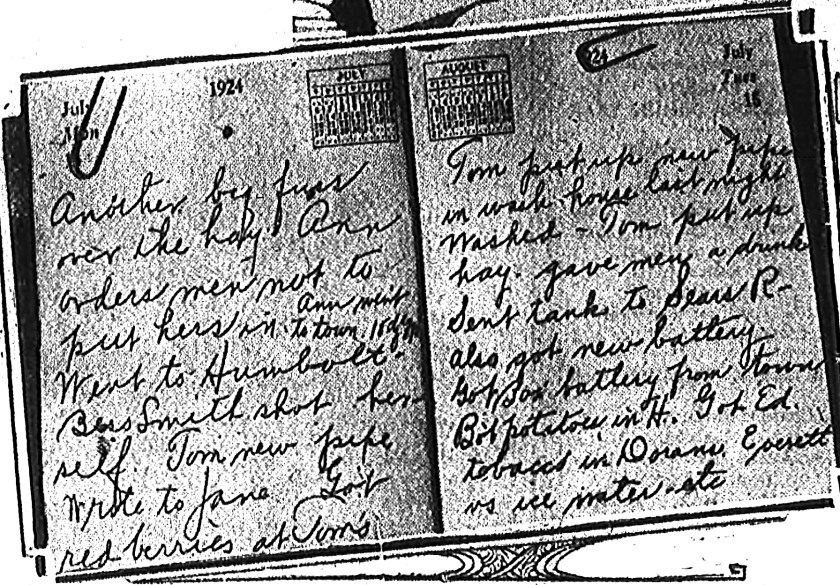 1924
July
Mon
JULY
Another big fuss
over the hay. Ann
orders men not to
put hers in. Ann went
to town
Went to Humbolt-
Bess Smith shot her-
self. Tom new pipe
Wrote to Jane Got
red berries at Tom's
AUGUST
24
July
Tues
15
Tom put up new pipe
in wash house last night
Washed - Tom put up
hay. gave men a drink
Sent tank to Sears R-
also got new battery.
Got battery from town
Bot potatoes in H. Got Ed.
tobacco in Dorans. Everett
vs ice water etc